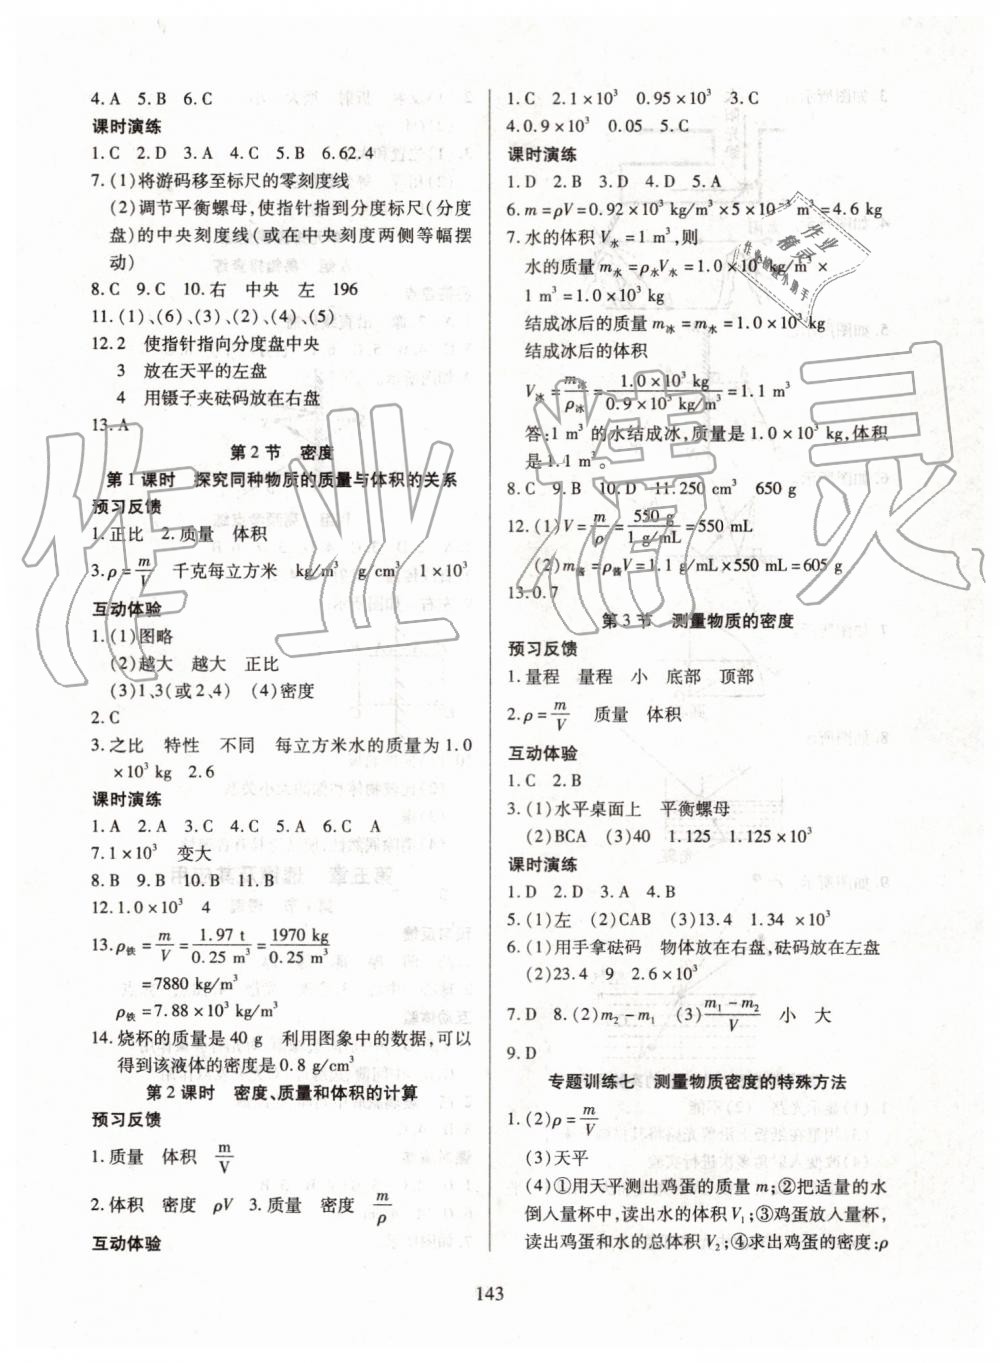 4.A　5.B　6.C
课时演练
1.C　2.D　3.A　4.C　5.B　6.62.4
7.(1)将游码移至标尺的零刻度线
(2)调节平衡螺母,使指针指到分度标尺(分度
盘)的中央刻度线(或在中央刻度线两侧等幅摆
动)
8.C　9.C　10.右　中央　左　196
11.(1)、(6)、(3)、(2)、(4)、(5)
12.2　使指针指向分度盘中央
3　放在天平的左盘
4　用镊子夹砝码放在右盘
13.A
第2节　密度
第1课时　探究同种物质的质量与体积的关系
预习反馈
1.正比　2.质量　体积
3.ρ=m/V　千克每立方米　kg/m³　g/cm³　1×10³
互动体验
1.(1)图略
(2)越大　越大　正比
(3)1、3(或2、4)　(4)密度
2.C
3.之比　特性　不同　每立方米水的质量为1.0
×10³ kg　2.6
课时演练
1.A　2.A　3.C　4.C　5.A　6.C　A
7.1×10³　变大
8.B　9.B　10.B　11.B
12.1.0×10³　4
13.ρ铁=m/V=1.97 t/0.25 m³=1970 kg/0.25 m³
=7880 kg/m³
ρ铁=7.88×10³ kg/m³
14.烧杯的质量是40 g　利用图象中的数据,可以
得到该液体的密度是0.8 g/cm³
第2课时　密度、质量和体积的计算
预习反馈
1.质量　体积　m/V
2.体积　密度　ρV　3.质量　密度　m/ρ
互动体验
1.C　2.1×10³　0.95×10³　3.C
4.0.9×10³　0.05　5.C
课时演练
1.D　2.B　3.D　4.D　5.A
6.m=ρV=0.92×10³ kg/m³×5×10⁻³ m³=4.6 kg
7.水的体积V水=1 m³,则
水的质量m水=ρ水V水=1.0×10³ kg/m³×
1 m³=1.0×10³ kg
结成冰后的质量m冰=m水=1.0×10³ kg
结成冰后的体积
V冰=m冰/ρ冰=1.0×10³ kg/0.9×10³ kg/m³=1.1 m³
答:1 m³的水结成冰,质量是1.0×10³ kg,体积
是1.1 m³。
8.C　9.B　10.D　11.250 cm³　650 g
12.(1)V=m/ρ=550 g/1 g/mL=550 mL
(2)m酱=ρ酱V=1.1 g/mL×550 mL=605 g
13.0.7
第3节　测量物质的密度
预习反馈
1.量程　量程　小　底部　顶部
2.ρ=m/V　质量　体积
互动体验
1.C　2.B
3.(1)水平桌面上　平衡螺母
(2)BCA　(3)40　1.125　1.125×10³
课时演练
1.D　2.D　3.A　4.B
5.(1)左　(2)CAB　(3)13.4　1.34×10³
6.(1)用手拿砝码　物体放在右盘,砝码放在左盘
(2)23.4　9　2.6×10³
7.D　8.(2)m₂-m₁　(3)m₁-m₂/V　小　大
9.D
专题训练七　测量物质密度的特殊方法
1.(2)ρ=m/V
(3)天平
(4)①用天平测出鸡蛋的质量m;②把适量的水
倒入量杯中,读出水的体积V₁;③鸡蛋放入量杯,
读出鸡蛋和水的总体积V₂;④求出鸡蛋的密度:ρ
143
作业精灵
作业精灵
作业检查小助手